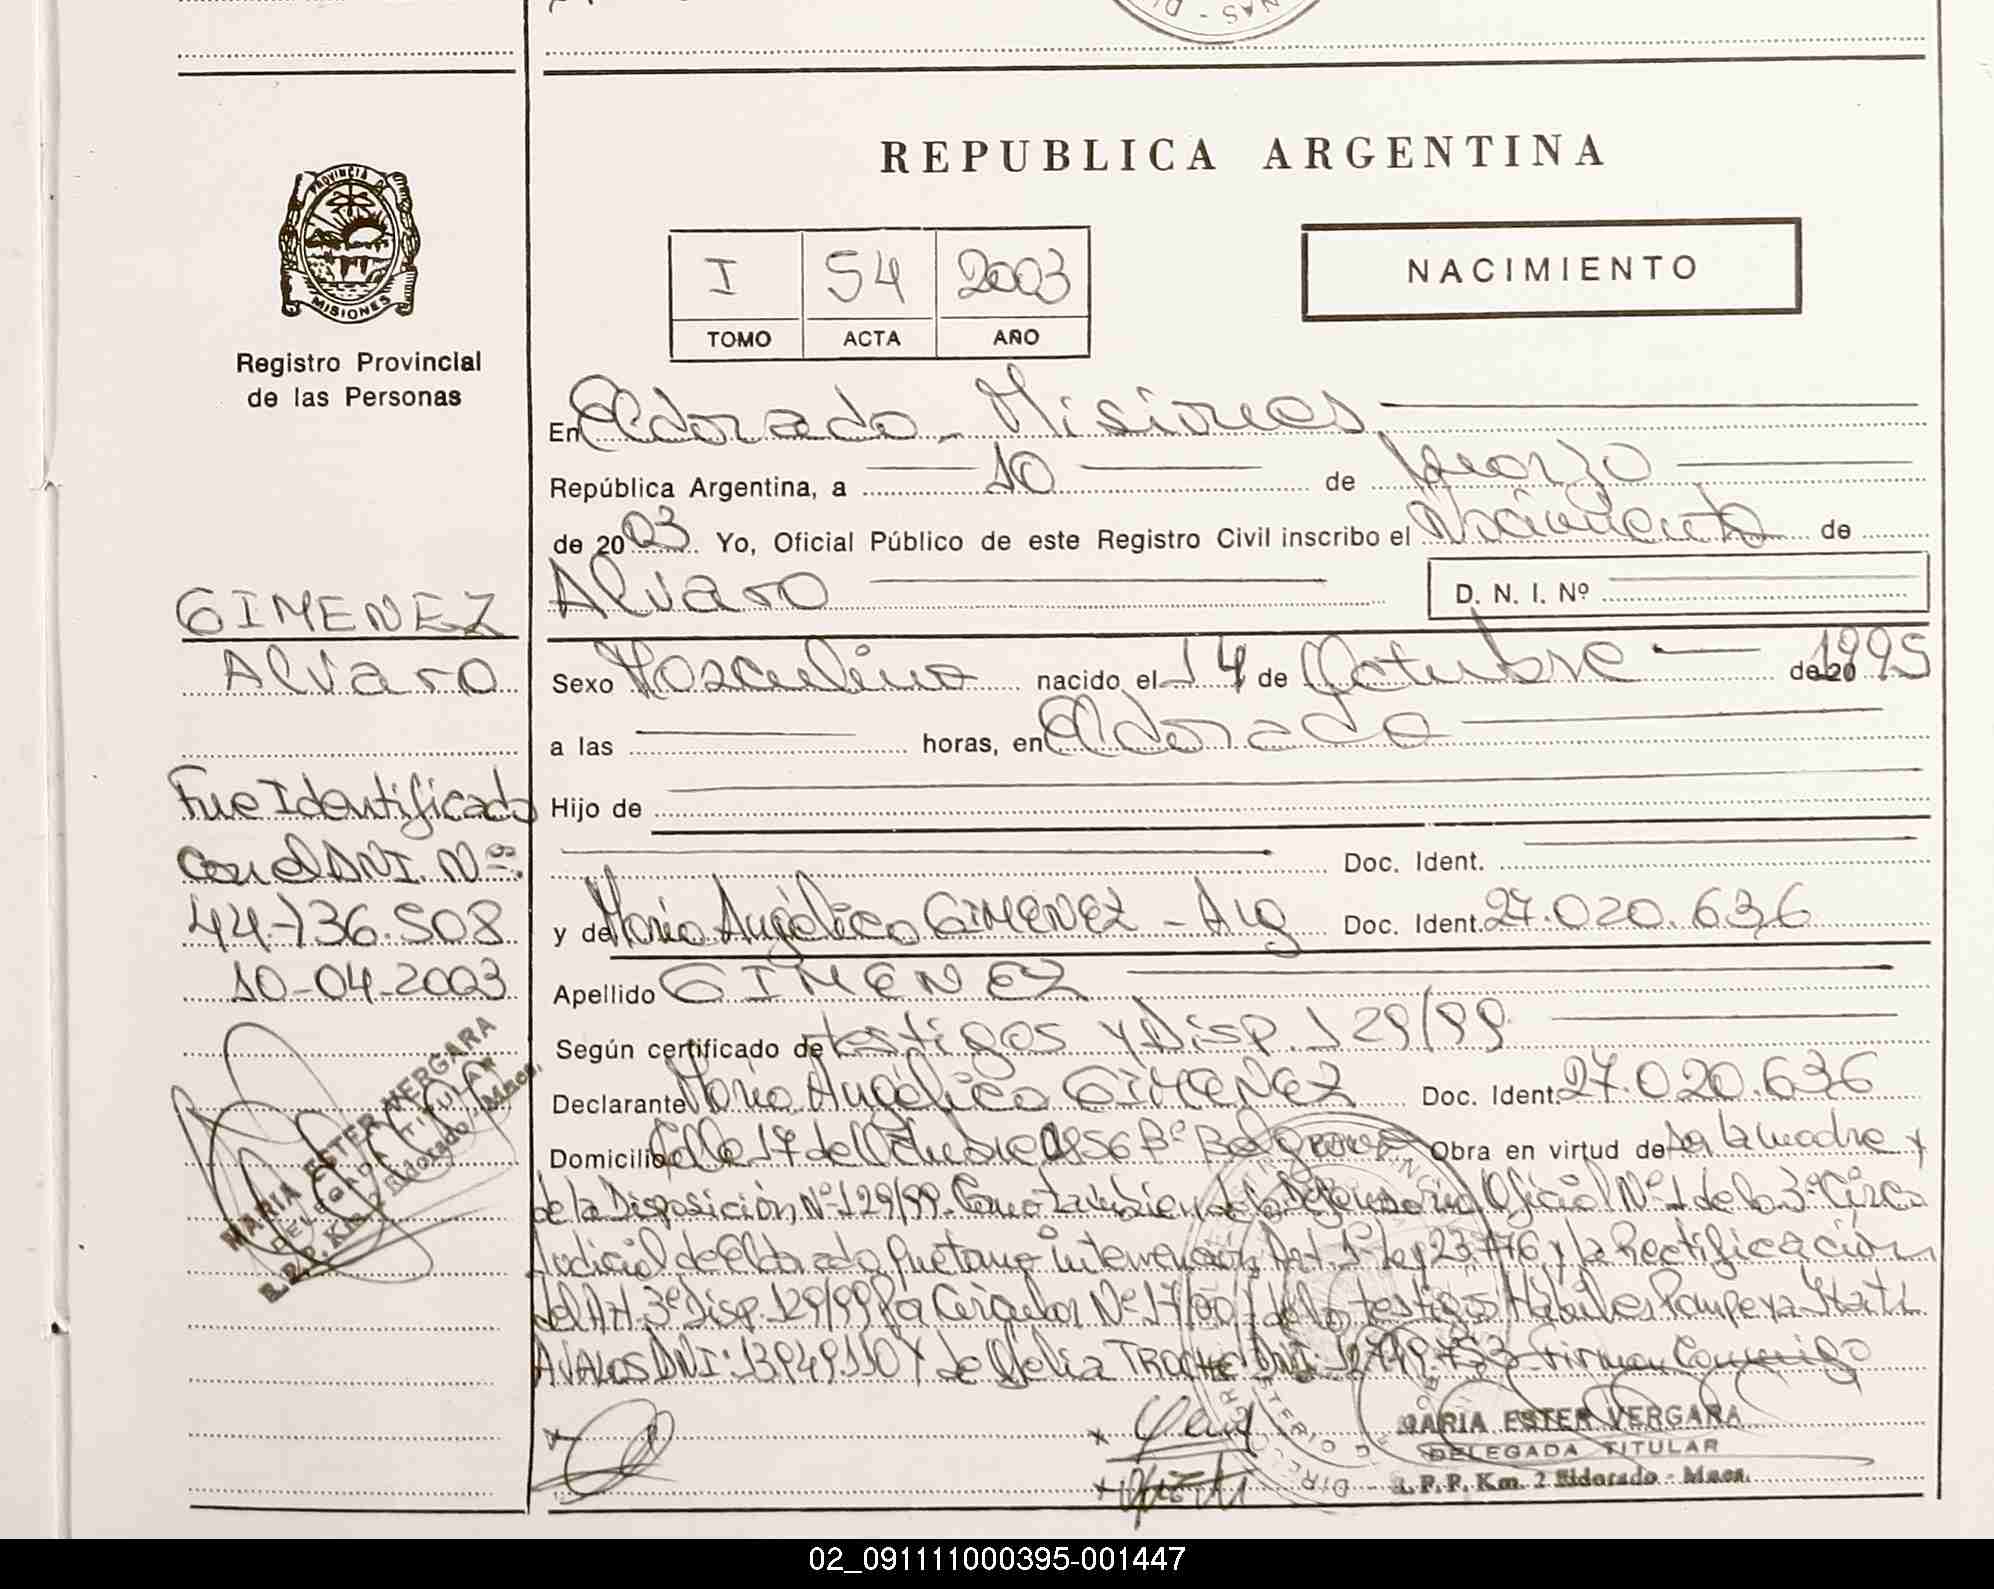 PROVINCIA DE
MISIONES
Registro Provincial
de las Personas
REPUBLICA ARGENTINA
I 54 2003
TOMO ACTA AÑO
NACIMIENTO
En Eldorado - Misiones
República Argentina, a 10 de Marzo
de 2003 Yo, Oficial Público de este Registro Civil inscribo el Nacimiento de
Alvaro D. N. I. Nº
GIMENEZ
Alvaro
Sexo Masculino nacido el 14 de Octubre de 20 1995
a las horas, en Eldorado
Hijo de
Doc. Ident.
y de Maria Angélica GIMENEZ - Arg Doc. Ident. 27.020.636
Apellido GIMENEZ
Según certificado de testigos y Disp. 129/99
Declarante Maria Angélica GIMENEZ Doc. Ident. 27.020.636
Domicilio Calle 17 de Octubre 856 Bº Belgrano Obra en virtud de ser la madre y
de la Disposición Nº 129/99. Como tambien de la Defensoria Oficial Nº 1 de la 3º Circ.
Judicial de Eldorado que tomo intervención Art. 1º ley 23.776, y la Rectificación
del Art. 3º Disp. 129/99 Pa Circular Nº 17/00 y de los testigos Hábiles Pompeya Marti
AVALOS DNI: 13949.110 Y de Delia TROCHE DNI. Firman Conmigo
Fue Identificado
con el DNI. Nº:
44.736.508
10-04-2003
MARIA ESTER VERGARA
DELEGADA TITULAR
R. P. P. Km. 2 Eldorado - Mnes.
MARIA ESTER VERGARA
DELEGADA TITULAR
R. P. P. Km. 2 Eldorado - Mnes.
02_091111000395-001447